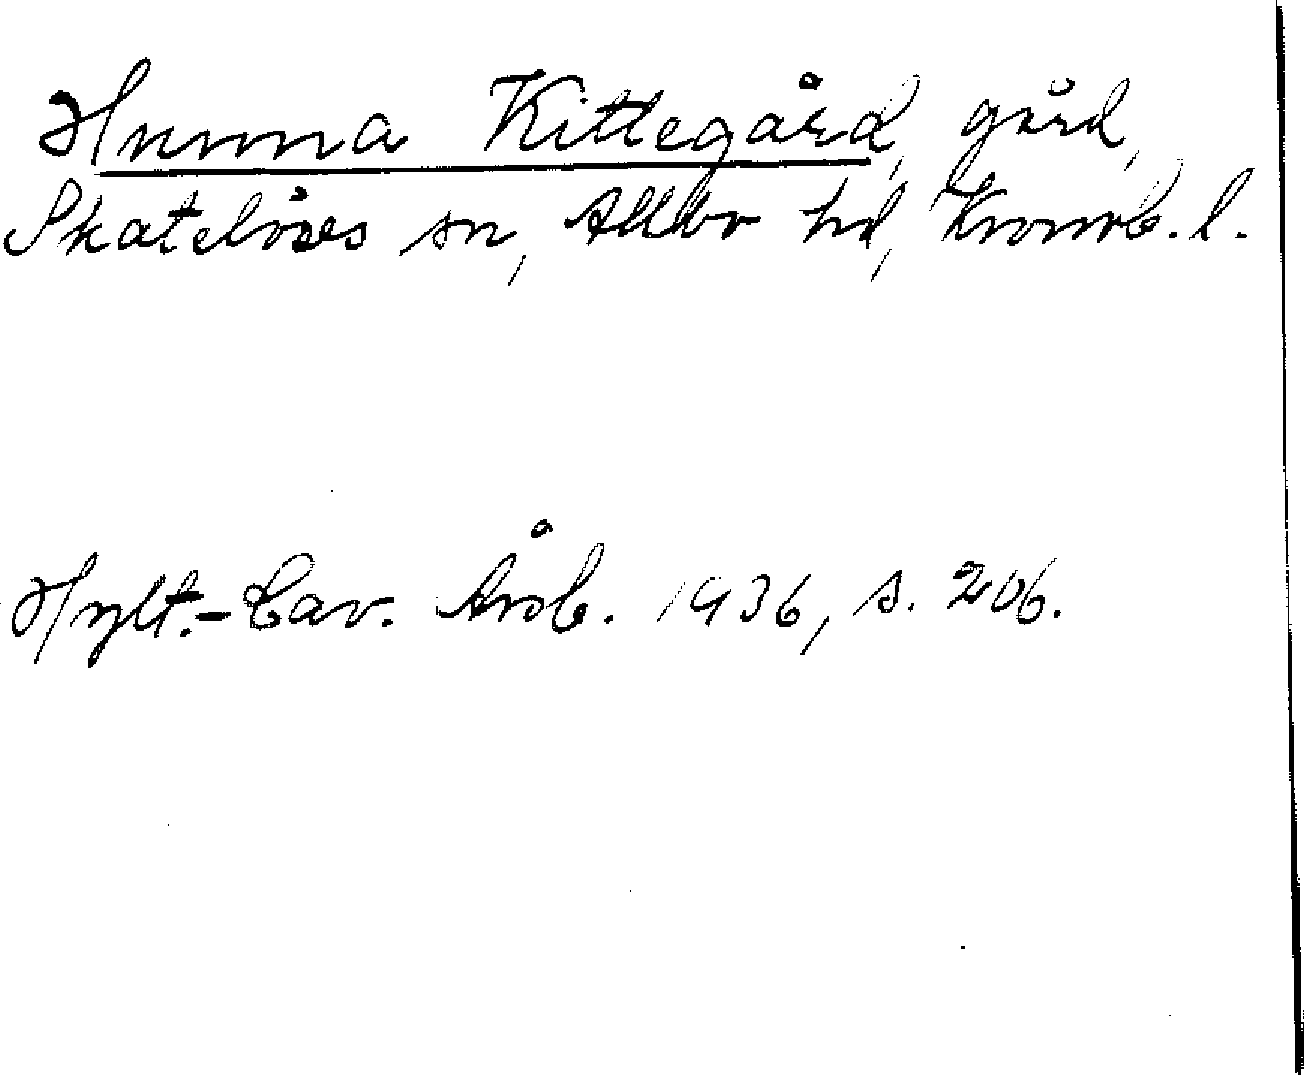 Hunna Kittegård, gård,
Skatelövs sn, Allbo hd, Kronob. l.
Hylt.-Cav. Årsb. 1936, s. 206.